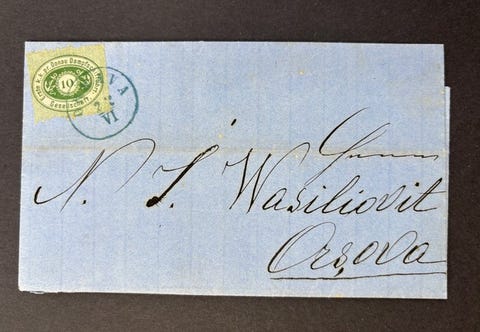 Erste k.k. pr. Donau Dampfschiffahrt
Gesellschaft.
10
VA
VI
N. I. Wasiliovit
Orşova